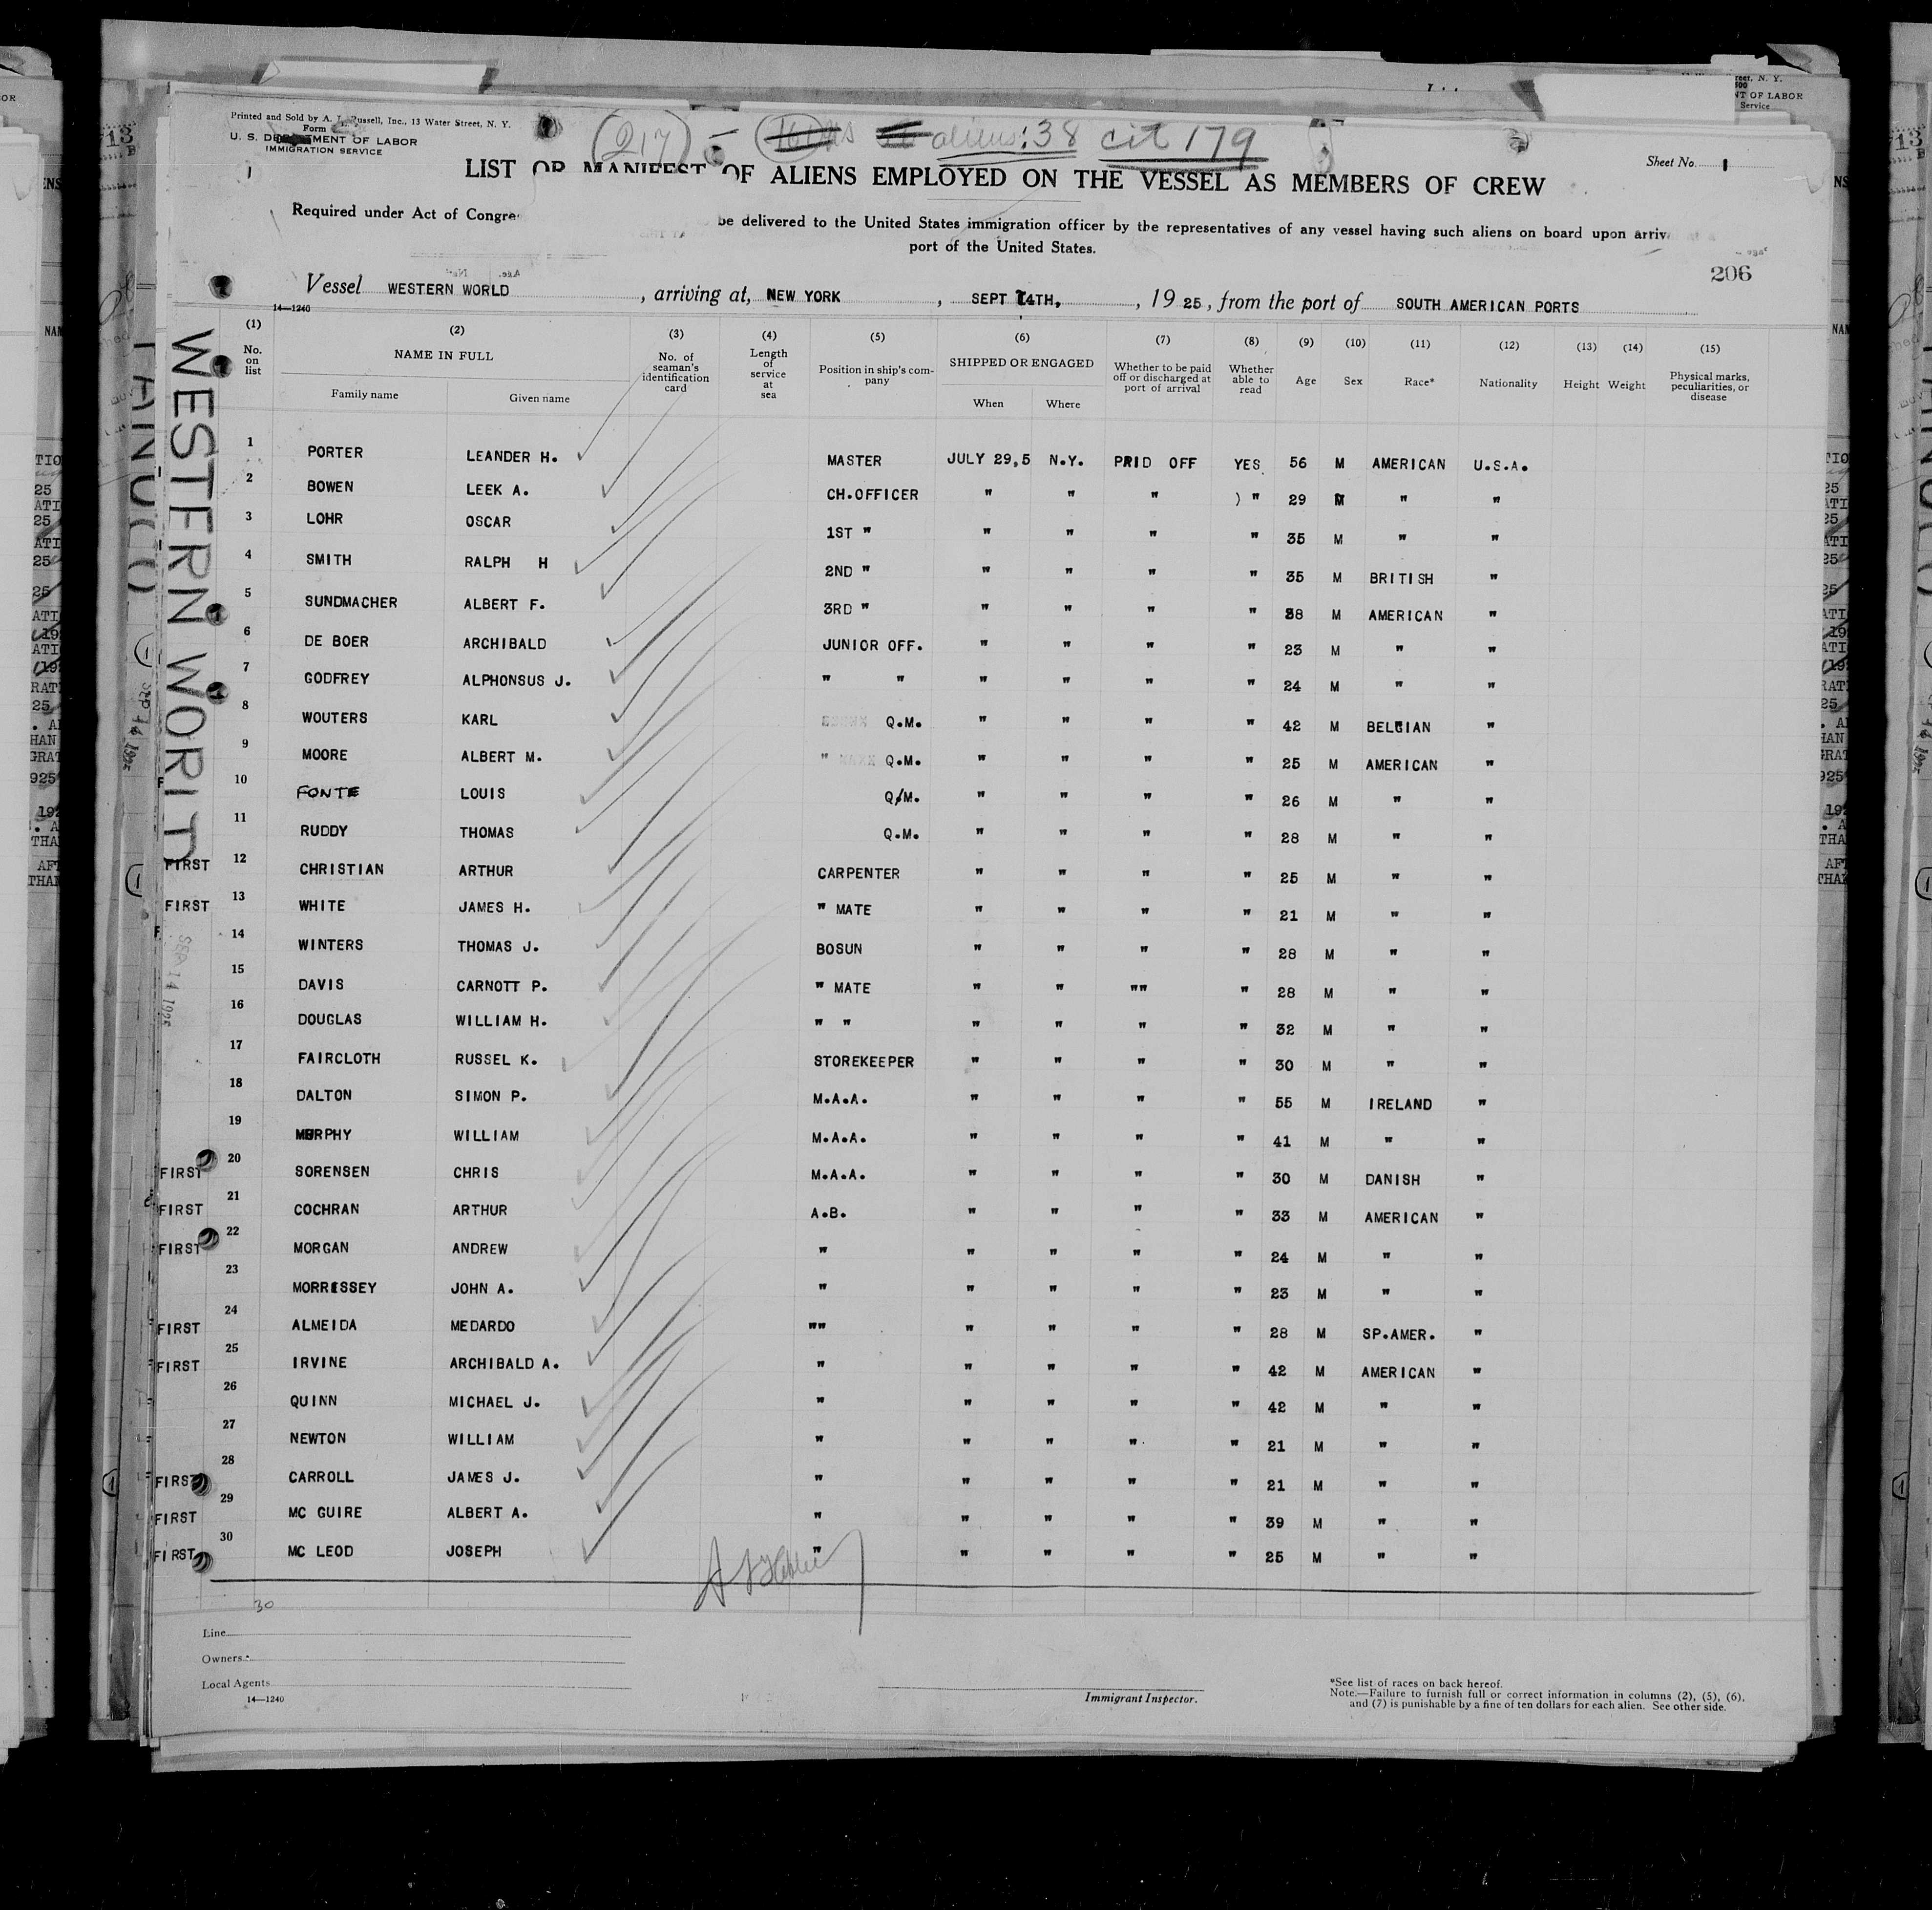 Printed and Sold by A. L. Russell, Inc., 13 Water Street, N. Y.
Form
U. S. DEPARTMENT OF LABOR
IMMIGRATION SERVICE
217 — aliens: 38 cit 179
Sheet No. 1
LIST OR MANIFEST OF ALIENS EMPLOYED ON THE VESSEL AS MEMBERS OF CREW
Required under Act of Congre be delivered to the United States immigration officer by the representatives of any vessel having such aliens on board upon arriv
port of the United States.
206
Vessel WESTERN WORLD, arriving at, NEW YORK, SEPT 14TH, 1925, from the port of SOUTH AMERICAN PORTS
14—1240
WESTERN WORLD
SEP 14 1925
(1) (2) (3) (4) (5) (6) (7) (8) (9) (10) (11) (12) (13) (14) (15)
No. on list NAME IN FULL No. of seaman's identification card Length of service at sea Position in ship's company SHIPPED OR ENGAGED Whether to be paid off or discharged at port of arrival Whether able to read Age Sex Race* Nationality Height Weight Physical marks, peculiarities, or disease
Family name Given name When Where
1 PORTER LEANDER H. MASTER JULY 29,5 N.Y. PRID OFF YES 56 M AMERICAN U.S.A.
2 BOWEN LEEK A. CH.OFFICER " " " ) " 29 M " "
3 LOHR OSCAR 1ST " " " " " 35 M " "
4 SMITH RALPH H 2ND " " " " " 35 M BRITISH "
5 SUNDMACHER ALBERT F. 3RD " " " " " 38 M AMERICAN "
6 DE BOER ARCHIBALD JUNIOR OFF. " " " " 23 M " "
7 GODFREY ALPHONSUS J. " " " " " " 24 M " "
8 WOUTERS KARL Q.M. " " " " 42 M BELGIAN "
9 MOORE ALBERT M. " Q.M. " " " " 25 M AMERICAN "
10 FONTE LOUIS Q/M. " " " " 26 M " "
11 RUDDY THOMAS Q.M. " " " " 28 M " "
FIRST 12 CHRISTIAN ARTHUR CARPENTER " " " " 25 M " "
FIRST 13 WHITE JAMES H. " MATE " " " " 21 M " "
14 WINTERS THOMAS J. BOSUN " " " " 28 M " "
15 DAVIS CARNOTT P. " MATE " " "" " 28 M " "
16 DOUGLAS WILLIAM H. " " " " " " 32 M " "
17 FAIRCLOTH RUSSEL K. STOREKEEPER " " " " 30 M " "
18 DALTON SIMON P. M.A.A. " " " " 55 M IRELAND "
19 MURPHY WILLIAM M.A.A. " " " " 41 M " "
FIRST 20 SORENSEN CHRIS M.A.A. " " " " 30 M DANISH "
FIRST 21 COCHRAN ARTHUR A.B. " " " " 33 M AMERICAN "
FIRST 22 MORGAN ANDREW " " " " " 24 M " "
23 MORRISSEY JOHN A. " " " " " 23 M " "
FIRST 24 ALMEIDA MEDARDO "" " " " " 28 M SP.AMER. "
FIRST 25 IRVINE ARCHIBALD A. " " " " " 42 M AMERICAN "
26 QUINN MICHAEL J. " " " " " 42 M " "
27 NEWTON WILLIAM " " " " " 21 M " "
FIRST 28 CARROLL JAMES J. " " " " " 21 M " "
FIRST 29 MC GUIRE ALBERT A. " " " " " 39 M " "
FIRST 30 MC LEOD JOSEPH " " " " " 25 M " "
30
Line
Owners
Local Agents
14—1240
Immigrant Inspector.
*See list of races on back hereof.
Note.—Failure to furnish full or correct information in columns (2), (5), (6),
and (7) is punishable by a fine of ten dollars for each alien. See other side.